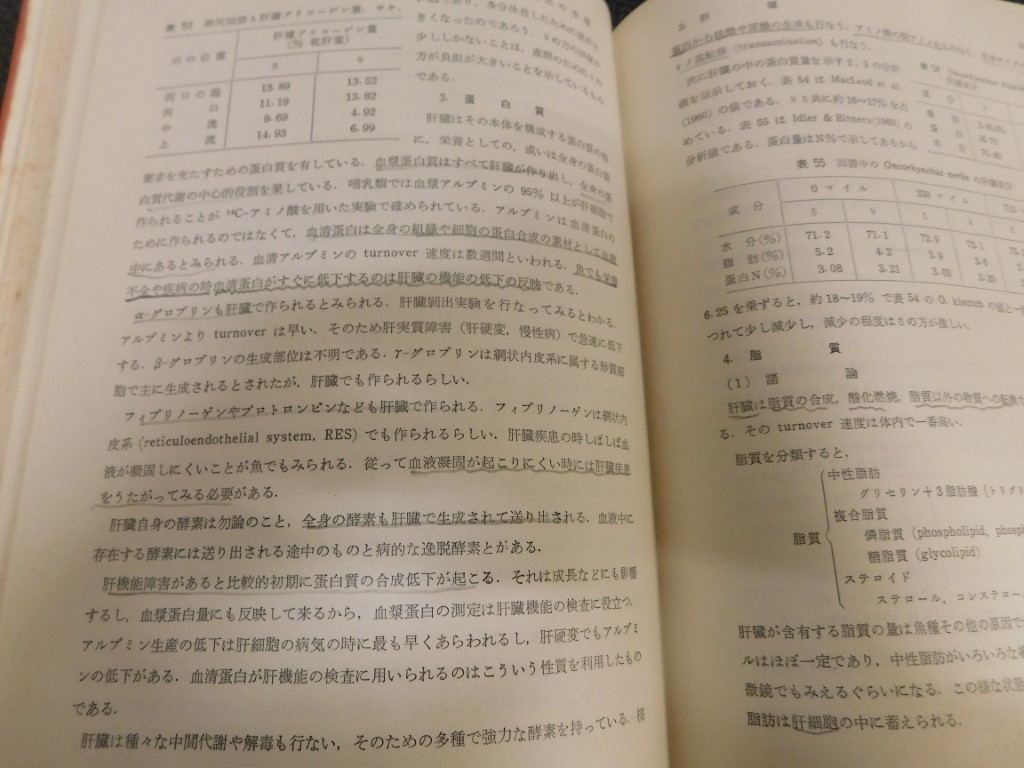 表 50 溯河回游と肝臓グリコーゲン量.
肝臓グリコーゲン量
(% 乾肝重)
川の位置 ♂ ♀
河口の海 13.89 13.52
河口 11.19 13.82
中流 9.69 4.92
上流 14.93 6.99
きくなったのであろう.
少ししかないことは, 産卵のために
方が負担が大きいことを示しているもの
である.
2. 蛋白質
肝臓はその本体を構成する蛋白質の他
に, 栄養としての, 或いは全身の蛋白質
要求を充たすための蛋白質を有している. 血漿蛋白質はすべて肝臓が作り出し, 全身の蛋
白質代謝の中心的役割を果している. 哺乳類では血漿アルブミンの 95% 以上が肝細胞で
作られることが ¹⁴C-アミノ酸を用いた実験で確められている. アルブミンは血清蛋白の
ために作られるのではなくて, 血清蛋白は全身の組織や細胞の蛋白合成の素材として血液
中にあるとみられる. 血清アルブミンの turnover 速度は数週間といわれる. 魚でも栄養
不全や疾病の時血清蛋白がすぐに低下するのは肝臓の機能の低下の反映である.
α-グロブリンも肝臓で作られるとみられる. 肝臓剔出実験を行なってみるとわかる.
アルブミンより turnover は早い. そのため肝実質障害 (肝硬変, 慢性病) で急速に低下
する. β-グロブリンの生成部位は不明である. γ-グロブリンは網状内皮系に属する形質細
胞で主に生成されるとされたが, 肝臓でも作られるらしい.
フィブリノーゲンやプロトロンビンなども肝臓で作られる. フィブリノーゲンは網状内
皮系 (reticuloendothelial system, RES) でも作られるらしい. 肝臓疾患の時しばしば血
液が凝固しにくいことが魚でもみられる. 従って血液凝固が起こりにくい時には肝臓疾患
をうたがってみる必要がある.
肝臓自身の酵素は勿論のこと, 全身の酵素も肝臓で生成されて送り出される. 血液中に
存在する酵素には送り出される途中のものと病的な逸脱酵素とがある.
肝機能障害があると比較的初期に蛋白質の合成低下が起こる. それは成長などにも影響
するし, 血漿蛋白量にも反映して来るから, 血漿蛋白の測定は肝臓機能の検査に役立つ.
アルブミン生産の低下は肝細胞の病気の時に最も早くあらわれるし, 肝硬変でもアルブミ
ンの低下がある. 血清蛋白が肝機能の検査に用いられるのはこういう性質を利用したもの
である.
肝臓は種々な中間代謝や解毒も行ない, そのための多種で強力な酵素を持っている. 核
3. 肝臓
蛋白から尿酸や尿酸の生成も行なう.
ミノ基転移 (transamination) も行なう.
次に肝臓の中の蛋白質量を示す 2, 3 の分析
値を呈示しておく. 表 54 は MacLeod et al.
(1960) の値である. ♀♂共に約 16～17% を占
めている. 表 55 は Idler & Bitners(1960) の
分析値である. 蛋白量はN%で示してあるから
表 54 Oncorhynchus
成分
表 55 回游中の Oncorhynchus nerka の肝臓成分
成分 0 マイル 250 マイル
♂ ♀ ♂ ♀
水分(%) 71.2 71.1 72.9 73.1
脂肪(%) 5.2 4.2 3.9 3.6
蛋白N(%) 3.08 3.21 3.03 3.20
6.25 を乗ずると, 約 18～19% で表 54 の O. kisutch の値と一
つれて少し減少し, 減少の程度は♂の方が激しい.
4. 脂質
(1) 諸論
肝臓は脂質の合成, 酸化燃焼, 脂質以外の物質への転換
る. その turnover 速度は体内で一番高い.
脂質を分類すると,
中性脂肪
グリセリン＋3脂肪酸 (トリグリ
複合脂質
脂質
燐脂質 (phospholipid,
糖脂質 (glycolipid)
ステロイド
ステロール, コレステロー
肝臓が含有する脂質の量は魚種その他の原因で
ルはほぼ一定であり, 中性脂肪がいろいろな
微鏡でもみえるぐらいになる. この様な状態
脂肪は肝細胞の中に蓄えられる.